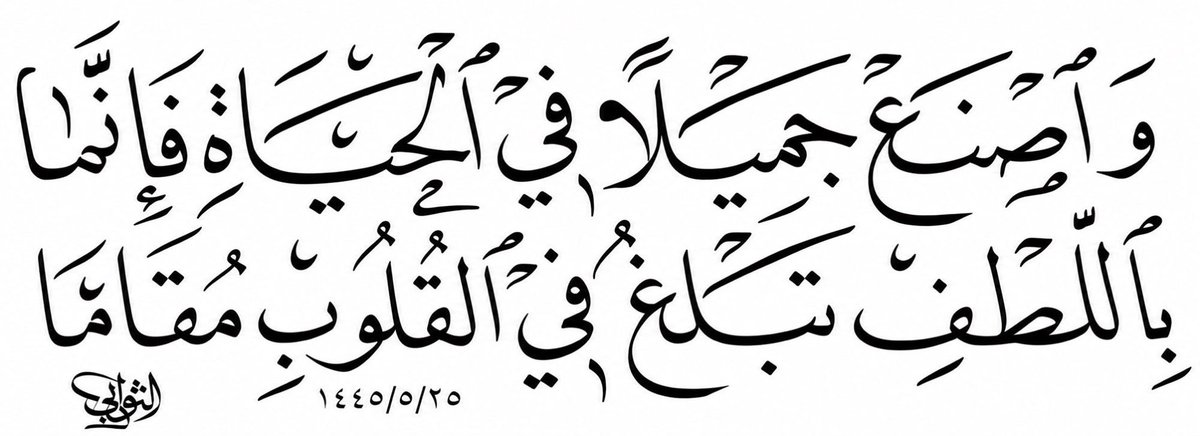 وَٱصْنَعْ جَمِيْلًا فِيْ ٱلْحَيَّاةِ فَإِنَّمَا
بِٱللُّطْفِ تَبْلُغُ فِيْ ٱلْقُلُوْبِ مُقَامَّا
١٤٤٥/٥/٢٥